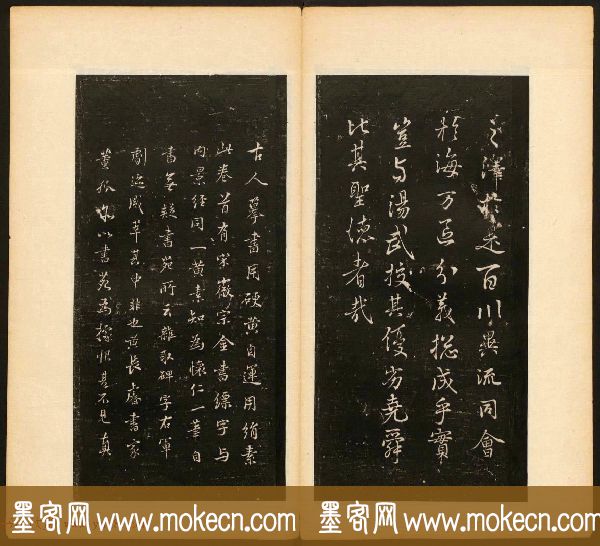 之泽於是百川异流同會
於海万區分義揔成乎實
豈与湯武挍其優劣堯舜
比其聖德者哉
古人摹書用硬黄自運用絹素
此卷首有宋徽宗金書縹字与
内景經同一黄素知為懷仁一筆自
書無疑書苑所云雜取碑字右軍
劇迹咸萃其中非也黄長睿書家
董狐亦以書苑為據恨其不見真
墨客网 www.mokecn.com
墨客网 www.mokecn.com